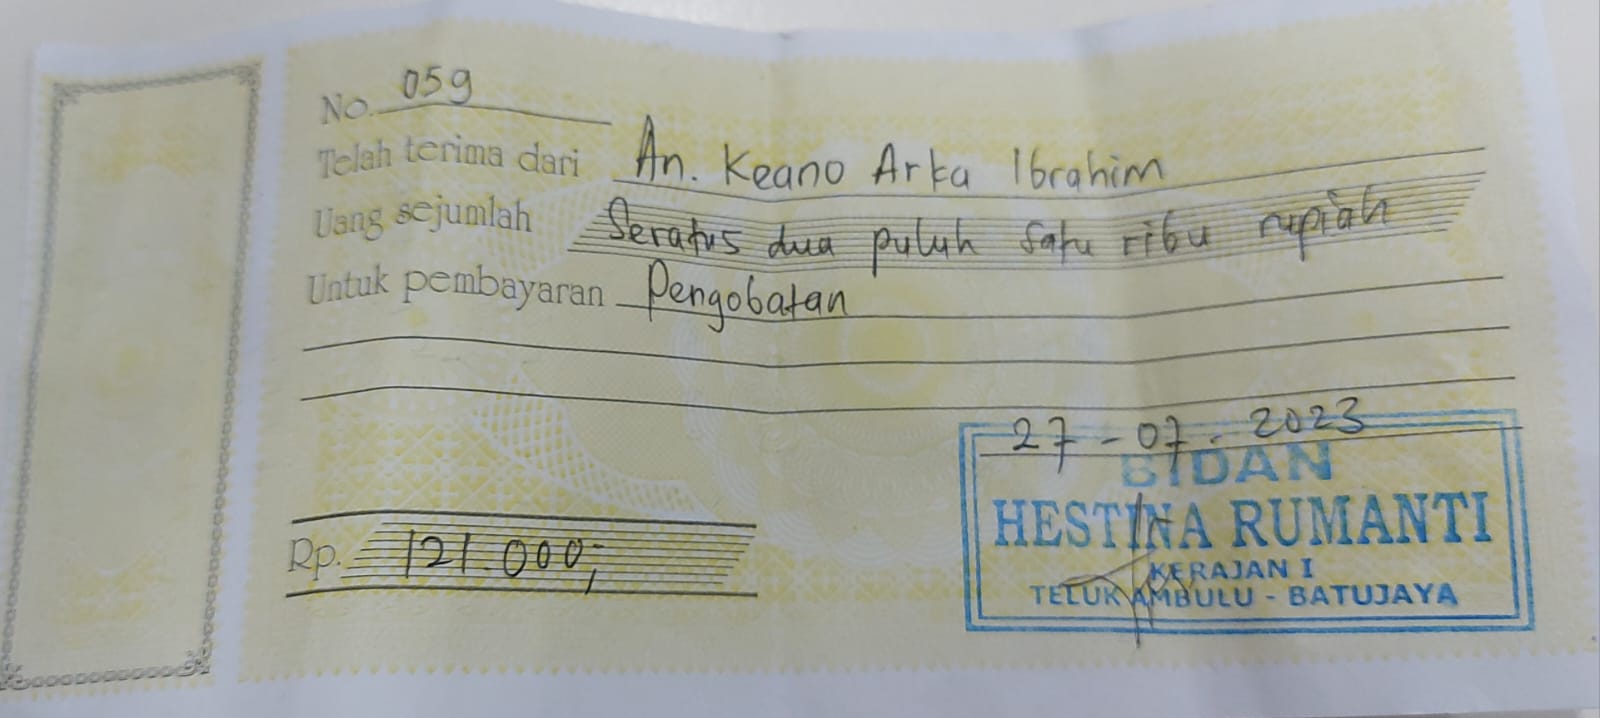 No. 059
Telah terima dari An. Keano Arka Ibrahim
Uang sejumlah Seratus dua puluh satu ribu rupiah
Untuk pembayaran Pengobatan
27 - 07 - 2023
BIDAN
HESTINA RUMANTI
KERAJAN I
TELUK AMBULU - BATUJAYA
Rp. 121.000,-